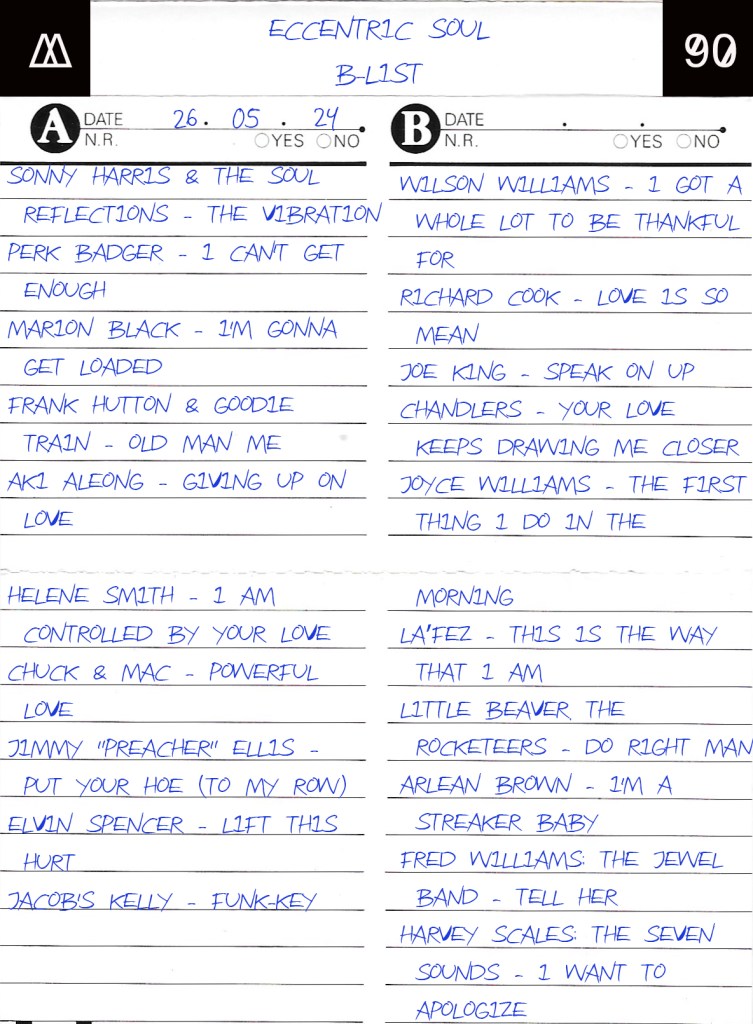 ECCENTRIC SOUL
B-LIST
90
A DATE 26. 05. 24
N.R. YES NO
SONNY HARRIS & THE SOUL
REFLECTIONS - THE VIBRATION
PERK BADGER - I CANT GET
ENOUGH
MARION BLACK - I'M GONNA
GET LOADED
FRANK HUTTON & GOODIE
TRAIN - OLD MAN ME
AKI ALEONG - GIVING UP ON
LOVE
HELENE SMITH - I AM
CONTROLLED BY YOUR LOVE
CHUCK & MAC - POWERFUL
LOVE
JIMMY "PREACHER" ELLIS -
PUT YOUR HOE (TO MY ROW)
ELVIN SPENCER - LIFT THIS
HURT
JACOB'S KELLY - FUNK-KEY
B DATE . .
N.R. YES NO
WILSON WILLIAMS - I GOT A
WHOLE LOT TO BE THANKFUL
FOR
RICHARD COOK - LOVE IS SO
MEAN
JOE KING - SPEAK ON UP
CHANDLERS - YOUR LOVE
KEEPS DRAWING ME CLOSER
JOYCE WILLIAMS - THE FIRST
THING I DO IN THE
MORNING
LA'FEZ - THIS IS THE WAY
THAT I AM
LITTLE BEAVER THE
ROCKETEERS - DO RIGHT MAN
ARLEAN BROWN - I'M A
STREAKER BABY
FRED WILLIAMS: THE JEWEL
BAND - TELL HER
HARVEY SCALES: THE SEVEN
SOUNDS - I WANT TO
APOLOGIZE